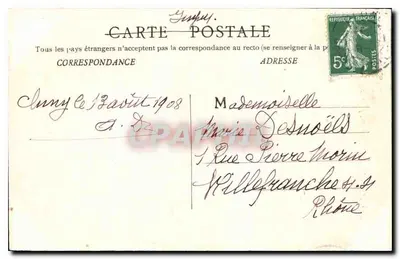 CARTE POSTALE
Tous les pays étrangers n'acceptent pas la correspondance au recto (se renseigner à la
CORRESPONDANCE
ADRESSE
REPUBLIQUE FRANÇAISE
5c
POSTES
Cluny le 13 août 1908
A. D.
Mademoiselle
Marie Desnoëls
1 Rue Pierre Morin
Villefranche s. S
Rhône